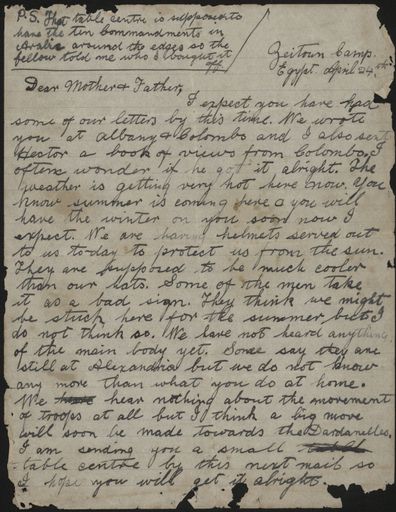 P.S. That table centre is supposed to
have the ten Commandments in
Arabic around the edges so the
fellow told me who I bought it
off
Zeitoun Camp.
Egypt. April 24th
Dear Mother & Father,
I expect you have had
some of our letters by this time. We wrote
you at Albany & Colombo and I also sent
Hector a book of views from Colombo. I
often wonder if he got it alright. The
weather is getting very hot here now. You
know summer is coming here & you will
have the winter on you soon now I
expect. We are having helmets served out
to us today to protect us from the sun.
They are supposed to be much cooler
than our hats. Some of the men take
it as a bad sign. They think we might
be stuck here for the summer but I
do not think so. We have not heard anything
of the main body yet. Some say they are
still at Alexandria but we do not know
any more than what you do at home.
We hear nothing about the movement
of troops at all but I think a big move
will soon be made towards the Dardanelles.
I am sending you a small
table centre by this next mail so
I hope you will get it alright.